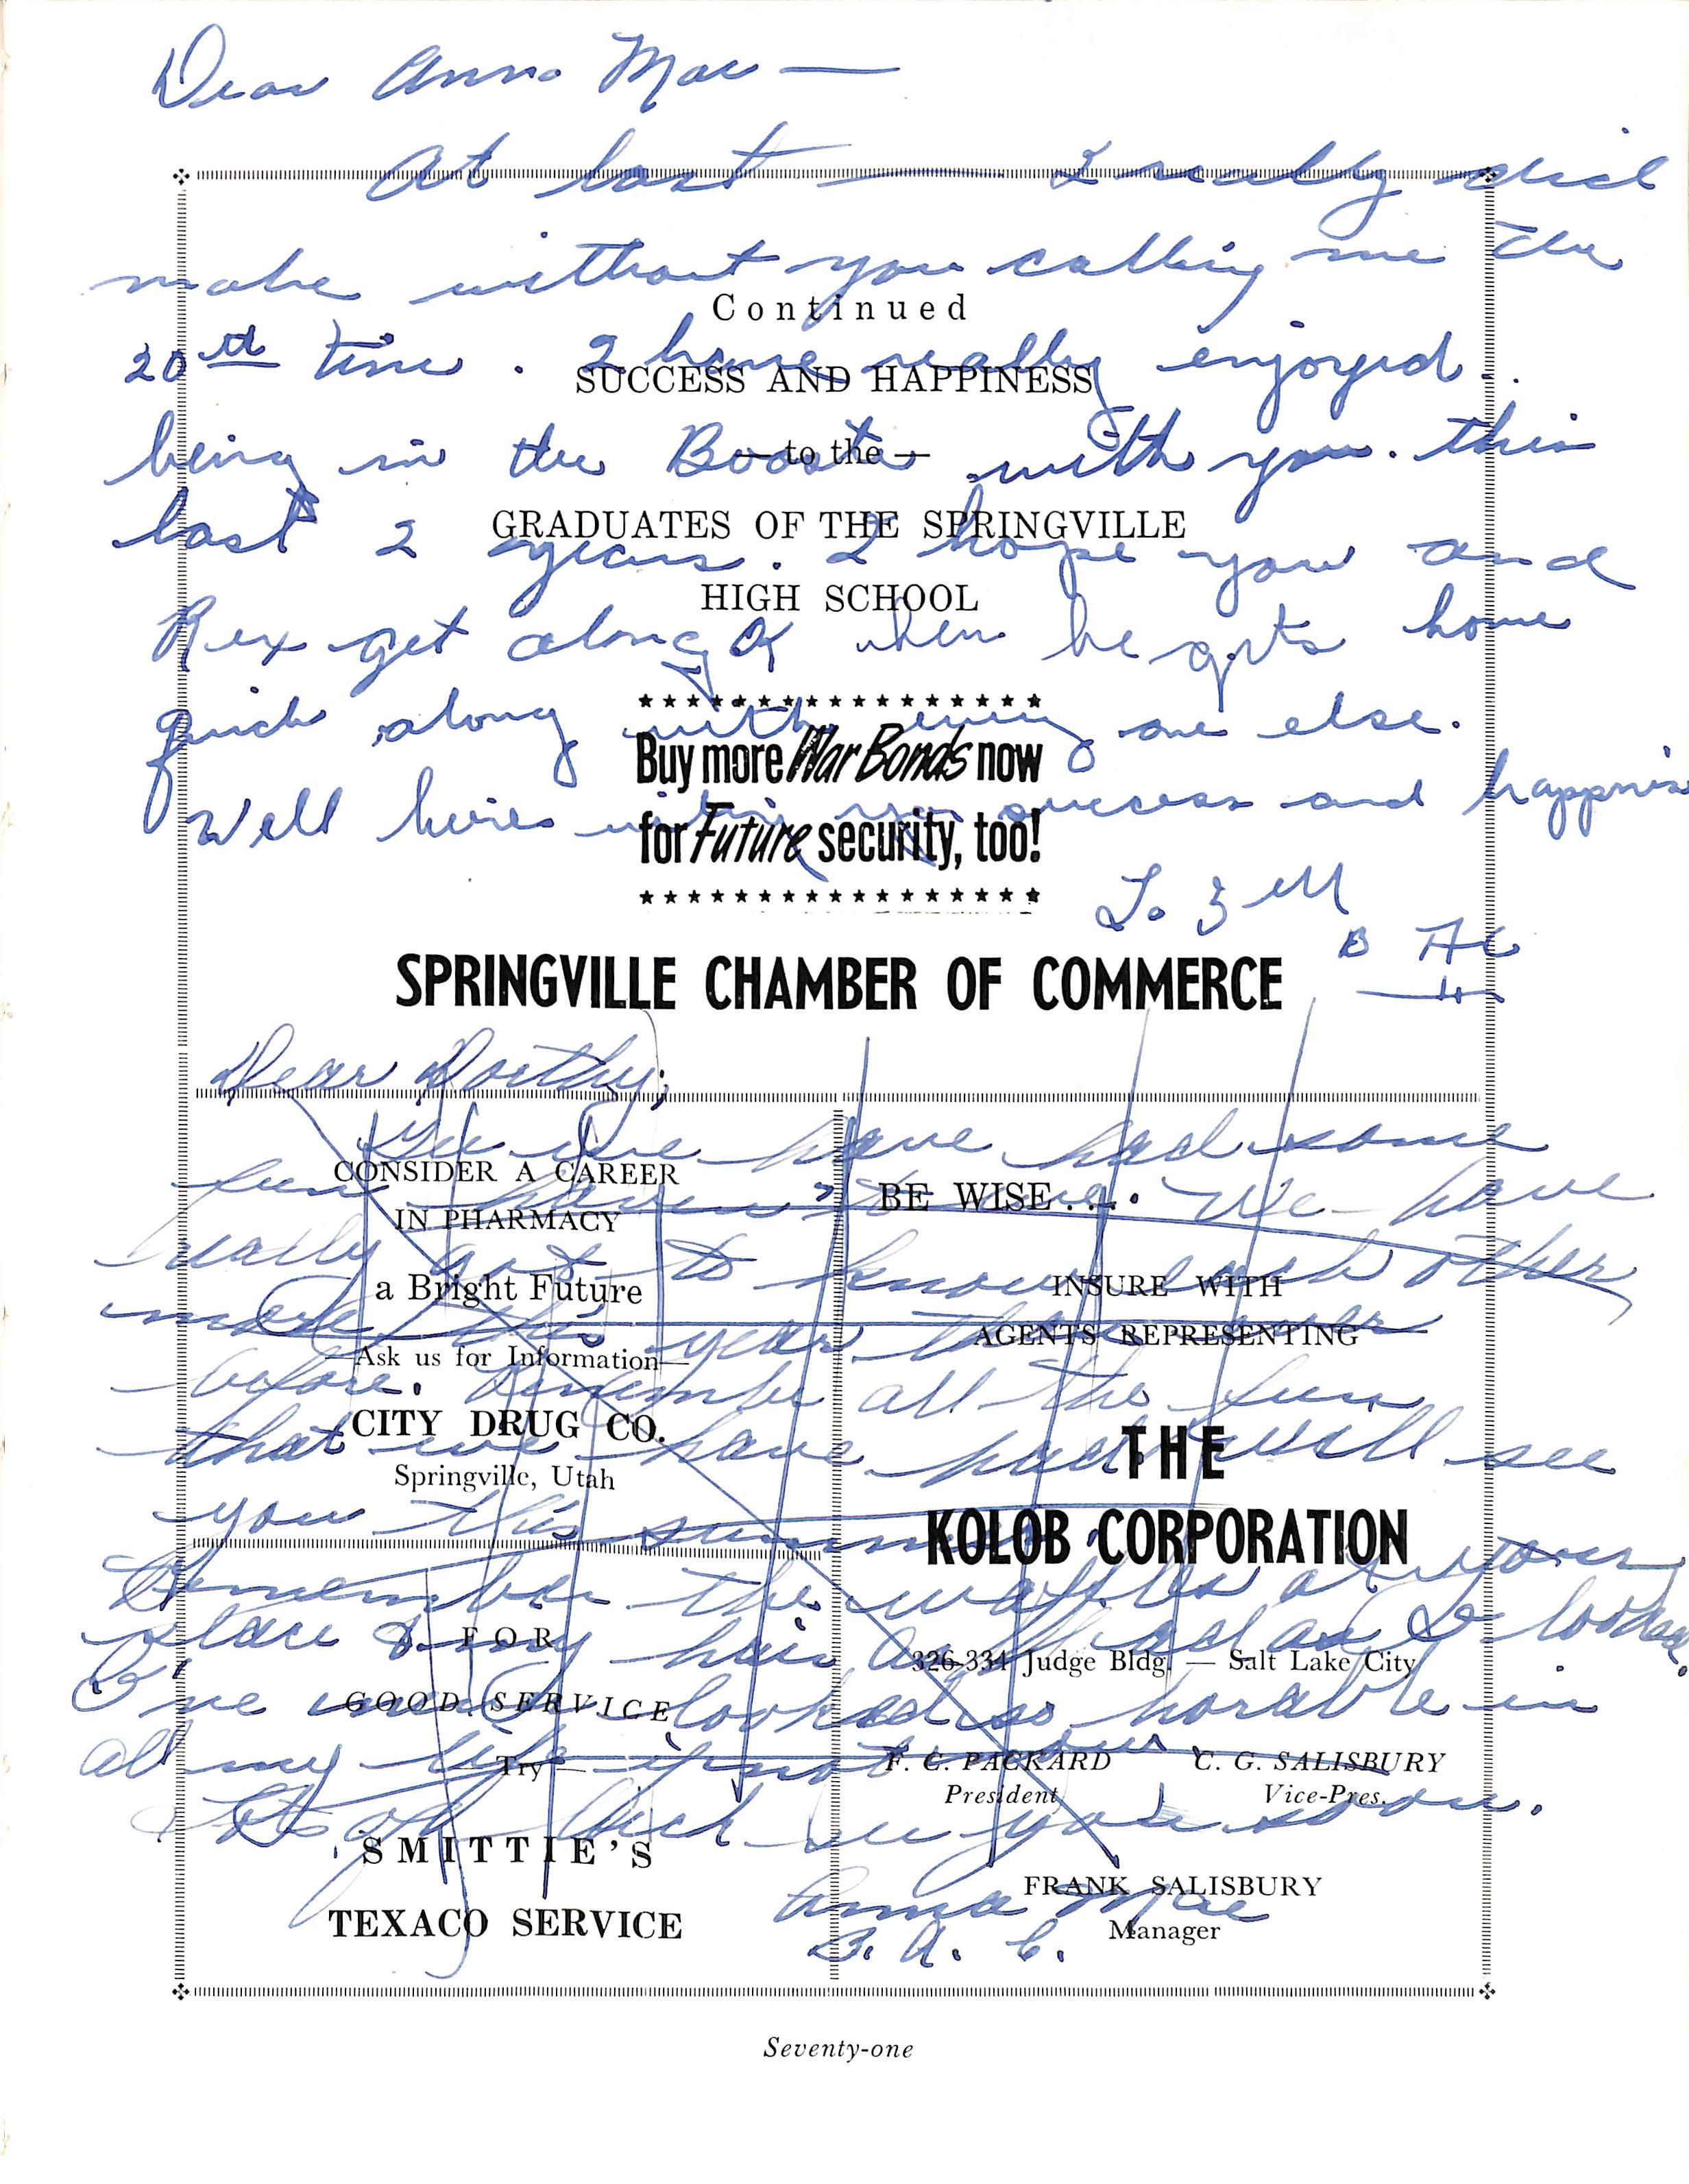 Dear Anna Mae —
At last — I really did
make without you calling me the
Continued
20th time. I have really enjoyed
SUCCESS AND HAPPINESS
being in the Booster with you this
— to the —
last 2 years. I hope you and
GRADUATES OF THE SPRINGVILLE
HIGH SCHOOL
Rex get along OK when he gets home
along with every one else.
Buy more War Bonds now
Well here's wishing you success and happiness
for Future security, too!
SPRINGVILLE CHAMBER OF COMMERCE
Dear Dorthy;
have had some
fun haven't we. We have
really got to know each other
more this year than ever
before. Remember all the fun
that we have had. Will see
you this summer.
Remember the waffles at your
place & my hair
I've never looked so horable in
all my life
luck see you soon.
Anna Mae
B. A. C.
CONSIDER A CAREER
IN PHARMACY
a Bright Future
—Ask us for Information—
CITY DRUG CO.
Springville, Utah
BE WISE . . .
INSURE WITH
AGENTS REPRESENTING
THE
KOLOB CORPORATION
326-334 Judge Bldg. — Salt Lake City
F. C. PACKARD
President
C. G. SALISBURY
Vice-Pres.
FRANK SALISBURY
Manager
FOR
GOOD SERVICE
— Try —
SMITTIE'S
TEXACO SERVICE
Seventy-one